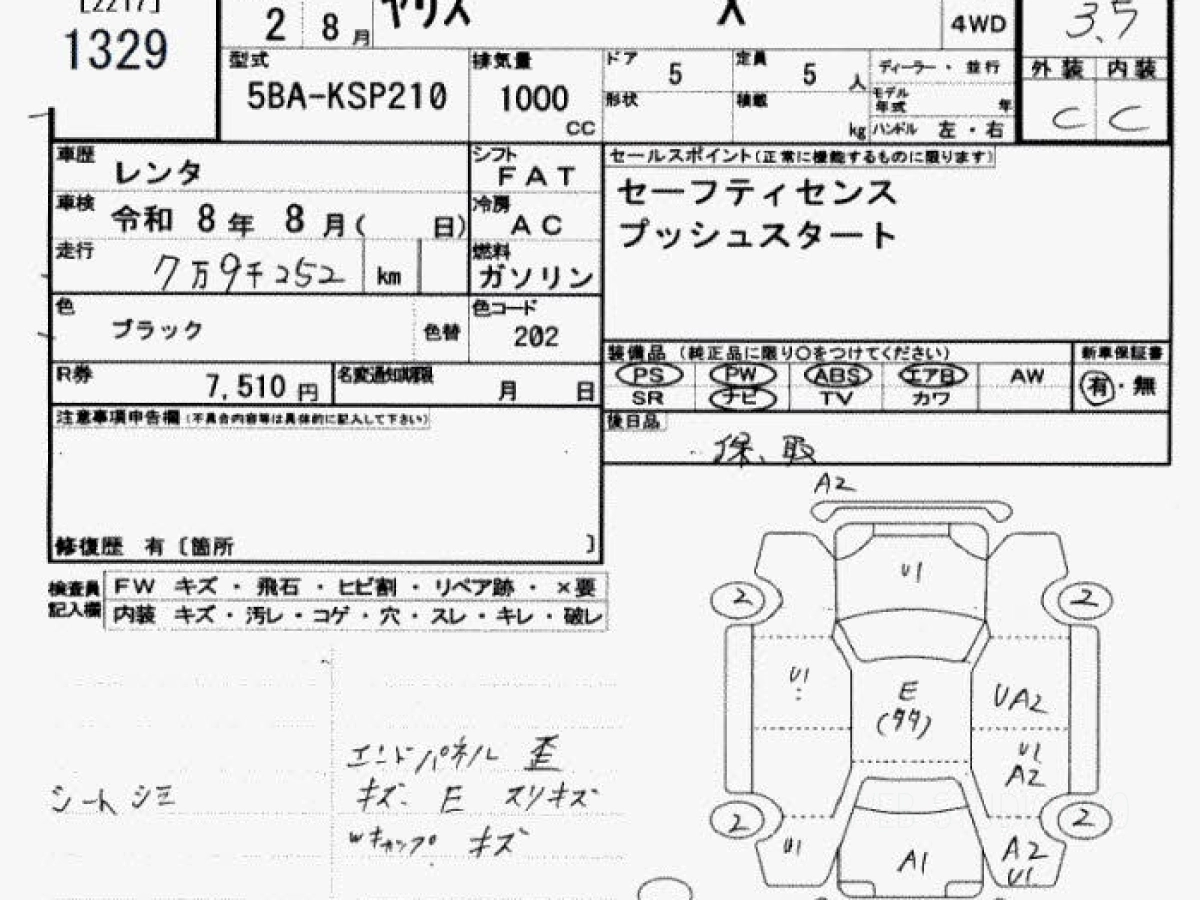 [2217]
1329
2 8 月
ヤリス X
4WD
3.5
型式
5BA-KSP210
排気量
1000
CC
ドア
5
定員
5 人
形状
積載
kg
ディーラー ・ 並行
モデル
年式 年
ハンドル 左 ・ 右
外装 内装
C C
車歴
レンタ
シフト
FAT
車検
令和 8 年 8 月( 日)
冷房
AC
走行
7万9千252 km
燃料
ガソリン
色
ブラック
色替
色コード
202
R券
7,510 円
名変通知期限
月 日
セールスポイント(正常に機能するものに限ります)
セーフティセンス
プッシュスタート
装備品 (純正品に限り〇をつけてください)
新車保証書
PS PW ABS エアB AW
有・無
SR ナビ TV カワ
後日品
保、取
注意事項申告欄(不具合内容等は具体的に記入して下さい)
修復歴 有 〔箇所 〕
検査員
記入欄
FW キズ ・ 飛石 ・ ヒビ割 ・ リペア跡 ・ ×要
内装 キズ ・ 汚レ ・ コゲ ・ 穴 ・ スレ ・ キレ ・ 破レ
シート シミ
エンドパネル 歪
キズ E スリキズ
Wキャップ キズ
A2
U1
2 2
U1
E
UA2
U1
A2
2 2
U1
A1
A2
U1